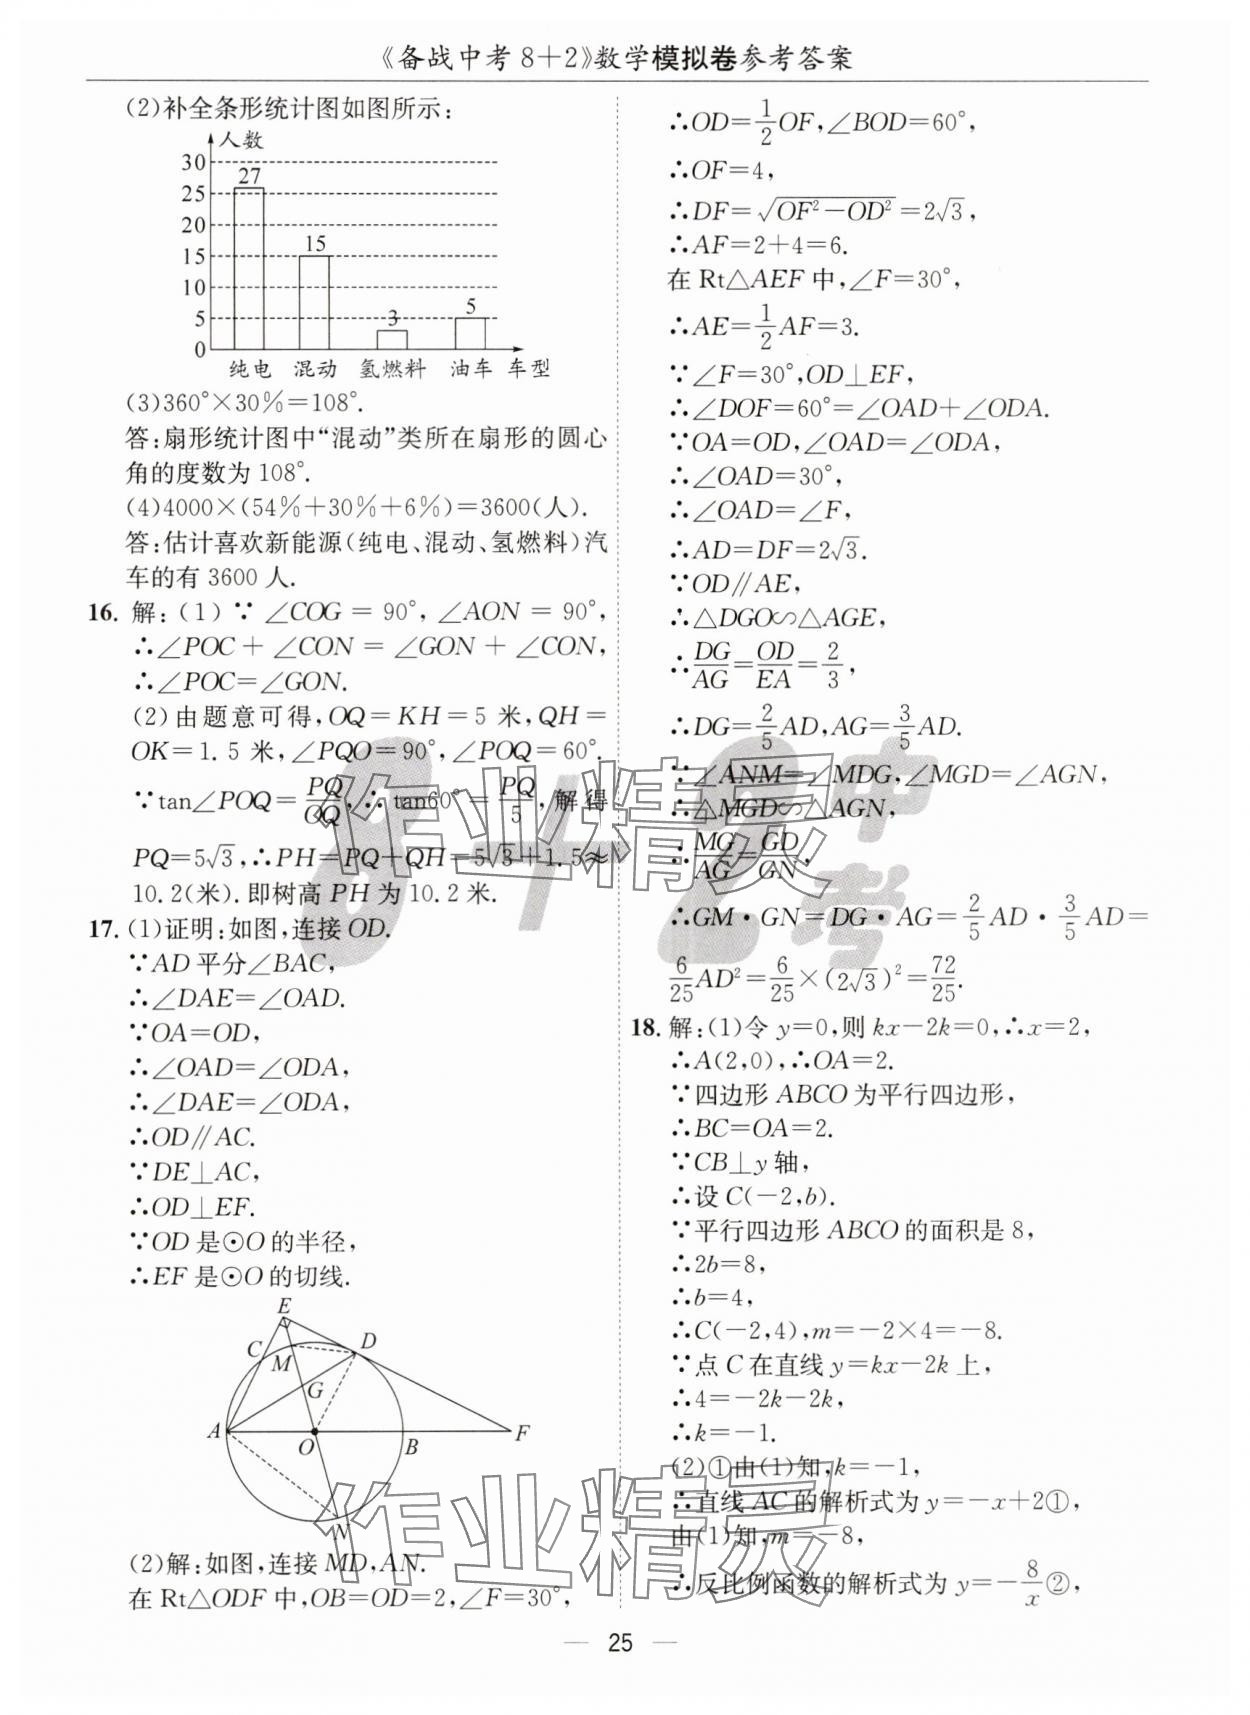 《备战中考8+2》数学模拟卷参考答案
(2)补全条形统计图如图所示:
人数
30
27
25
20
15
15
10
5
5
3
0
纯电 混动 氢燃料 油车 车型
(3)360°×30%=108°.
答:扇形统计图中“混动”类所在扇形的圆心
角的度数为108°.
(4)4000×(54%+30%+6%)=3600(人).
答:估计喜欢新能源(纯电、混动、氢燃料)汽
车的有3600人.
16. 解:(1)∵∠COG=90°,∠AON=90°,
∴∠POC+∠CON=∠GON+∠CON,
∴∠POC=∠GON.
(2)由题意可得,OQ=KH=5米,QH=
OK=1.5米,∠PQO=90°,∠POQ=60°.
∵tan∠POQ=PQ/OQ,∴tan60°=PQ/5,解得
PQ=5√3,∴PH=PQ+QH=5√3+1.5≈
10.2(米).即树高PH为10.2米.
17. (1)证明:如图,连接OD.
∵AD平分∠BAC,
∴∠DAE=∠OAD.
∵OA=OD,
∴∠OAD=∠ODA,
∴∠DAE=∠ODA,
∴OD∥AC.
∵DE⊥AC,
∴OD⊥EF.
∵OD是⊙O的半径,
∴EF是⊙O的切线.
E
C
M
D
G
A
O
B
F
N
(2)解:如图,连接MD,AN.
在Rt△ODF中,OB=OD=2,∠F=30°,
∴OD=1/2OF,∠BOD=60°,
∴OF=4,
∴DF=√(OF²-OD²)=2√3,
∴AF=2+4=6.
在Rt△AEF中,∠F=30°,
∴AE=1/2AF=3.
∵∠F=30°,OD⊥EF,
∴∠DOF=60°=∠OAD+∠ODA.
∵OA=OD,∠OAD=∠ODA,
∴∠OAD=30°,
∴∠OAD=∠F,
∴AD=DF=2√3.
∵OD∥AE,
∴△DGO∽△AGE,
∴DG/AG=OD/EA=2/3,
∴DG=2/5AD,AG=3/5AD.
∵∠ANM=∠MDG,∠MGD=∠AGN,
∴△MGD∽△AGN,
∴MG/AG=GD/GN,
∴GM·GN=DG·AG=2/5AD·3/5AD=
6/25AD²=6/25×(2√3)²=72/25.
18. 解:(1)令y=0,则kx-2k=0,∴x=2,
∴A(2,0),∴OA=2.
∵四边形ABCO为平行四边形,
∴BC=OA=2.
∵CB⊥y轴,
∴设C(-2,b).
∵平行四边形ABCO的面积是8,
∴2b=8,
∴b=4,
∴C(-2,4),m=-2×4=-8.
∵点C在直线y=kx-2k上,
∴4=-2k-2k,
∴k=-1.
(2)①由(1)知,k=-1,
∴直线AC的解析式为y=-x+2①,
由(1)知,m=-8,
∴反比例函数的解析式为y=-8/x②,
8+2 中考
作业精灵
作业精灵
— 25 —